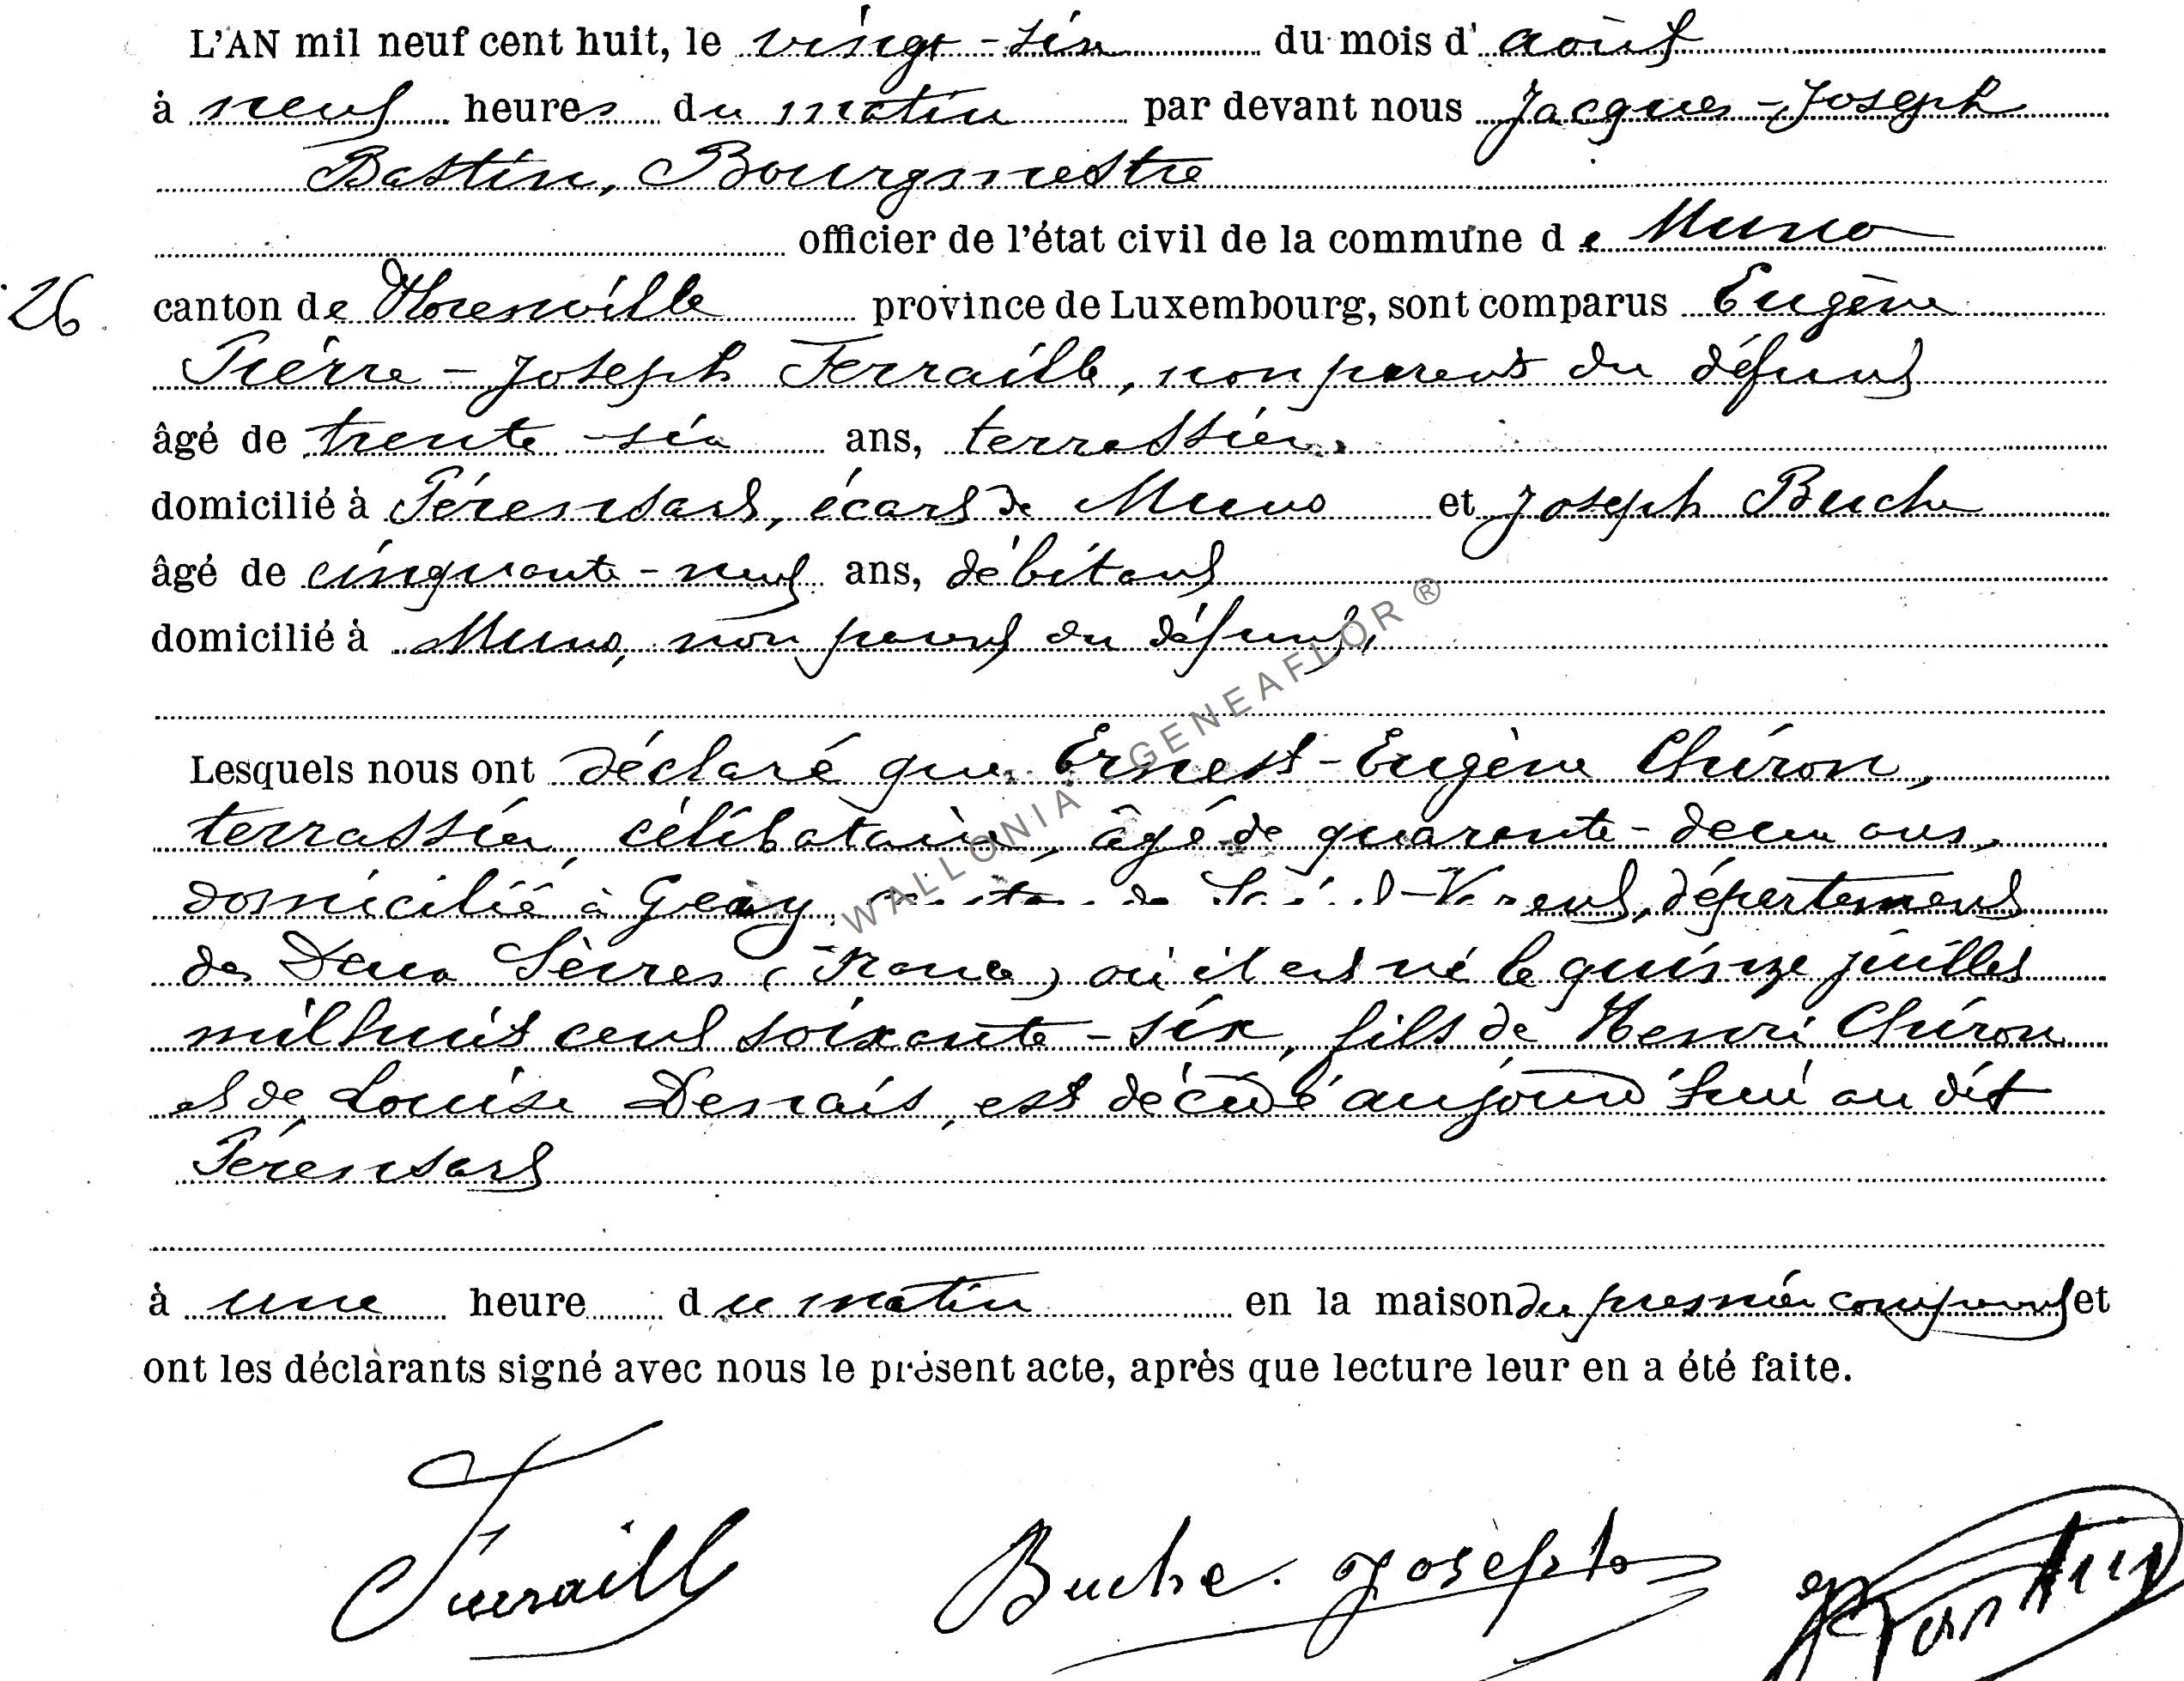 L'AN mil neuf cent huit, le vingt-six du mois d'août
à neuf heures du matin par devant nous Jacques-Joseph
Bastin, Bourgmestre
officier de l'état civil de la commune de Muno
26. canton de Florenville province de Luxembourg, sont comparus Eugène
Pierre-Joseph Ferraille, non parent du défunt
âgé de trente-six ans, terrassier
domicilié à Pérensart, écart de Muno et Joseph Buche
âgé de cinquante-neuf ans, débitant
domicilié à Muno, non parent du défunt,
Lesquels nous ont déclaré que Ernest-Eugène Chiron,
terrassier, célibataire, âgé de quarante-deux ans,
domicilié à Geay, canton de Saint-Varent, département
des Deux Sèvres (France) où il est né le quinze juillet
mil huit cent soixante-six, fils de Henri Chiron
et de Louise Denais, est décédé aujourd'hui au dit
Pérensart
à une heure du matin en la maison du premier comparant et
ont les déclarants signé avec nous le présent acte, après que lecture leur en a été faite.
Ferraille Buche Joseph
WALLONIA GENEAFLOR ®